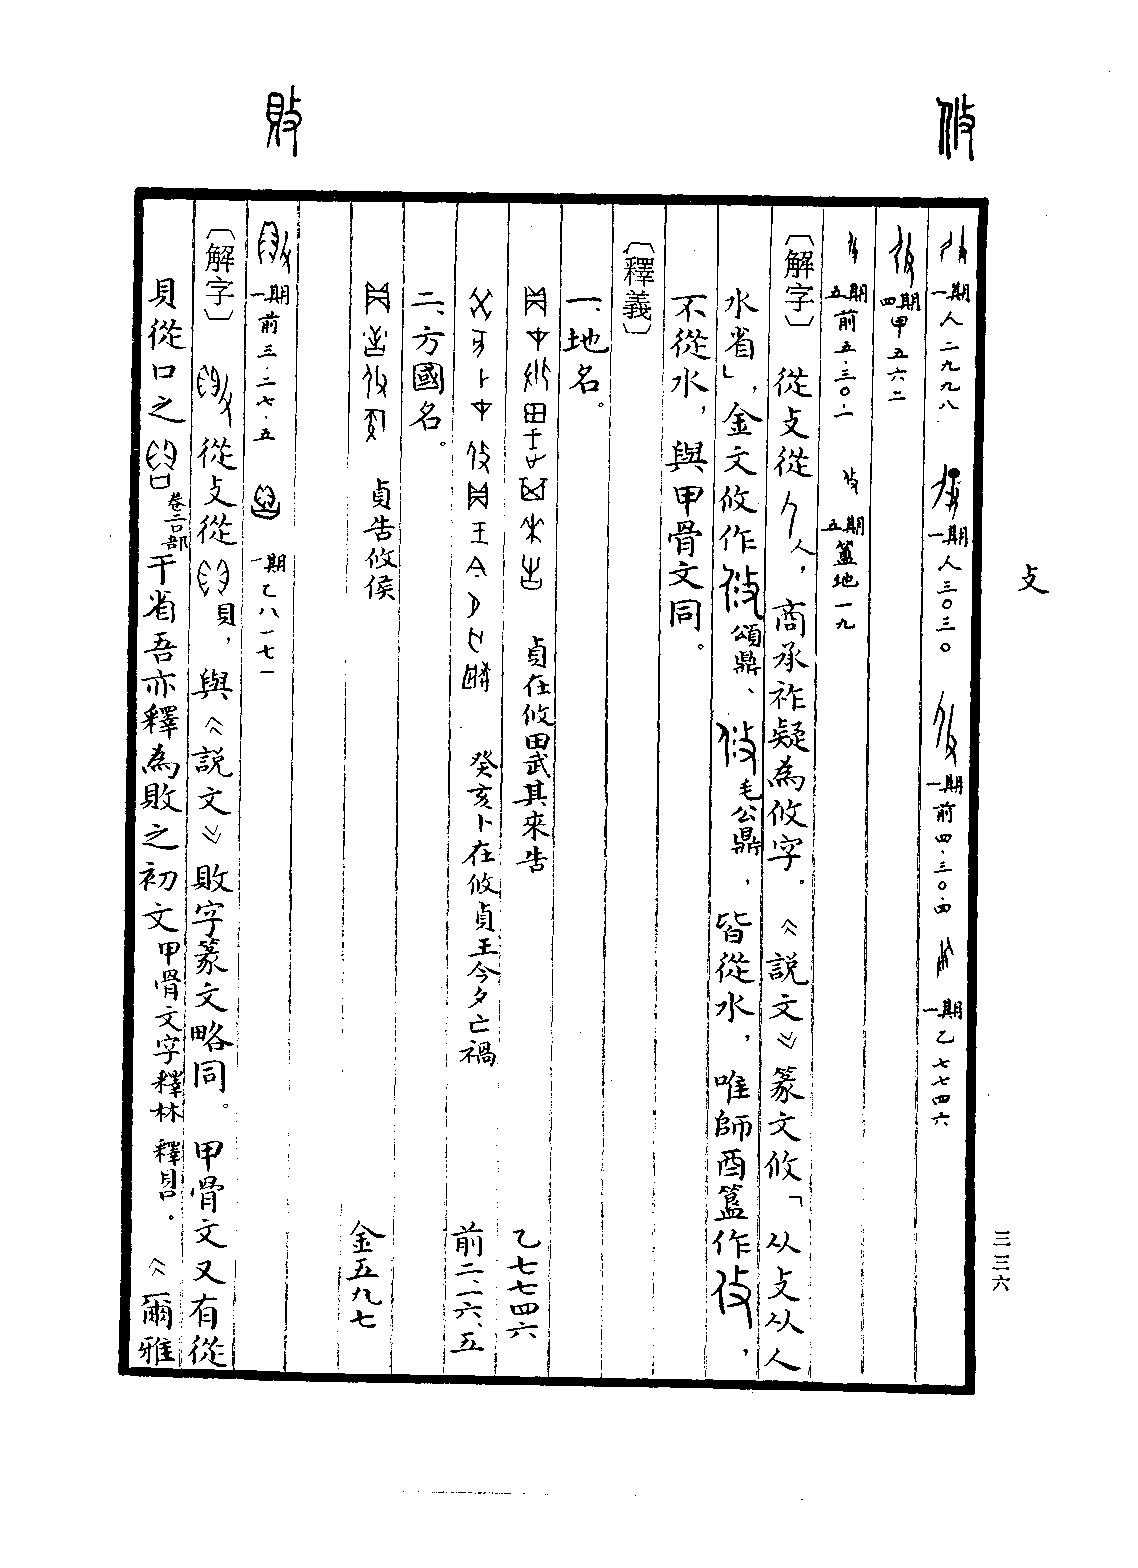 攸
一期人二九九八 一期人三〇三〇 一期前四·三〇·四 一期乙七七四六
四期甲五六二
五期前五·三〇·一 五期簠地一九
〔解字〕 從攴從人，商承祚疑為攸字。《說文》篆文攸「从攴从人
水省」，金文攸作 頌鼎、 毛公鼎，皆從水，唯師酉簋作 ，
不從水，與甲骨文同。
〔釋義〕
一、地名。
貞在攸田武其來告 乙七七四六
癸亥卜在攸貞王今夕亡禍 前二·一六·五
二、方國名。
貞告攸侯 金五九七
敗
一期前三·二七·五 一期乙八一七一
〔解字〕 從攴從 貝，與《說文》敗字篆文略同。甲骨文又有從
貝從口之 卷二口部 于省吾亦釋為敗之初文甲骨文字釋林 釋 。《爾雅
攴
三三六